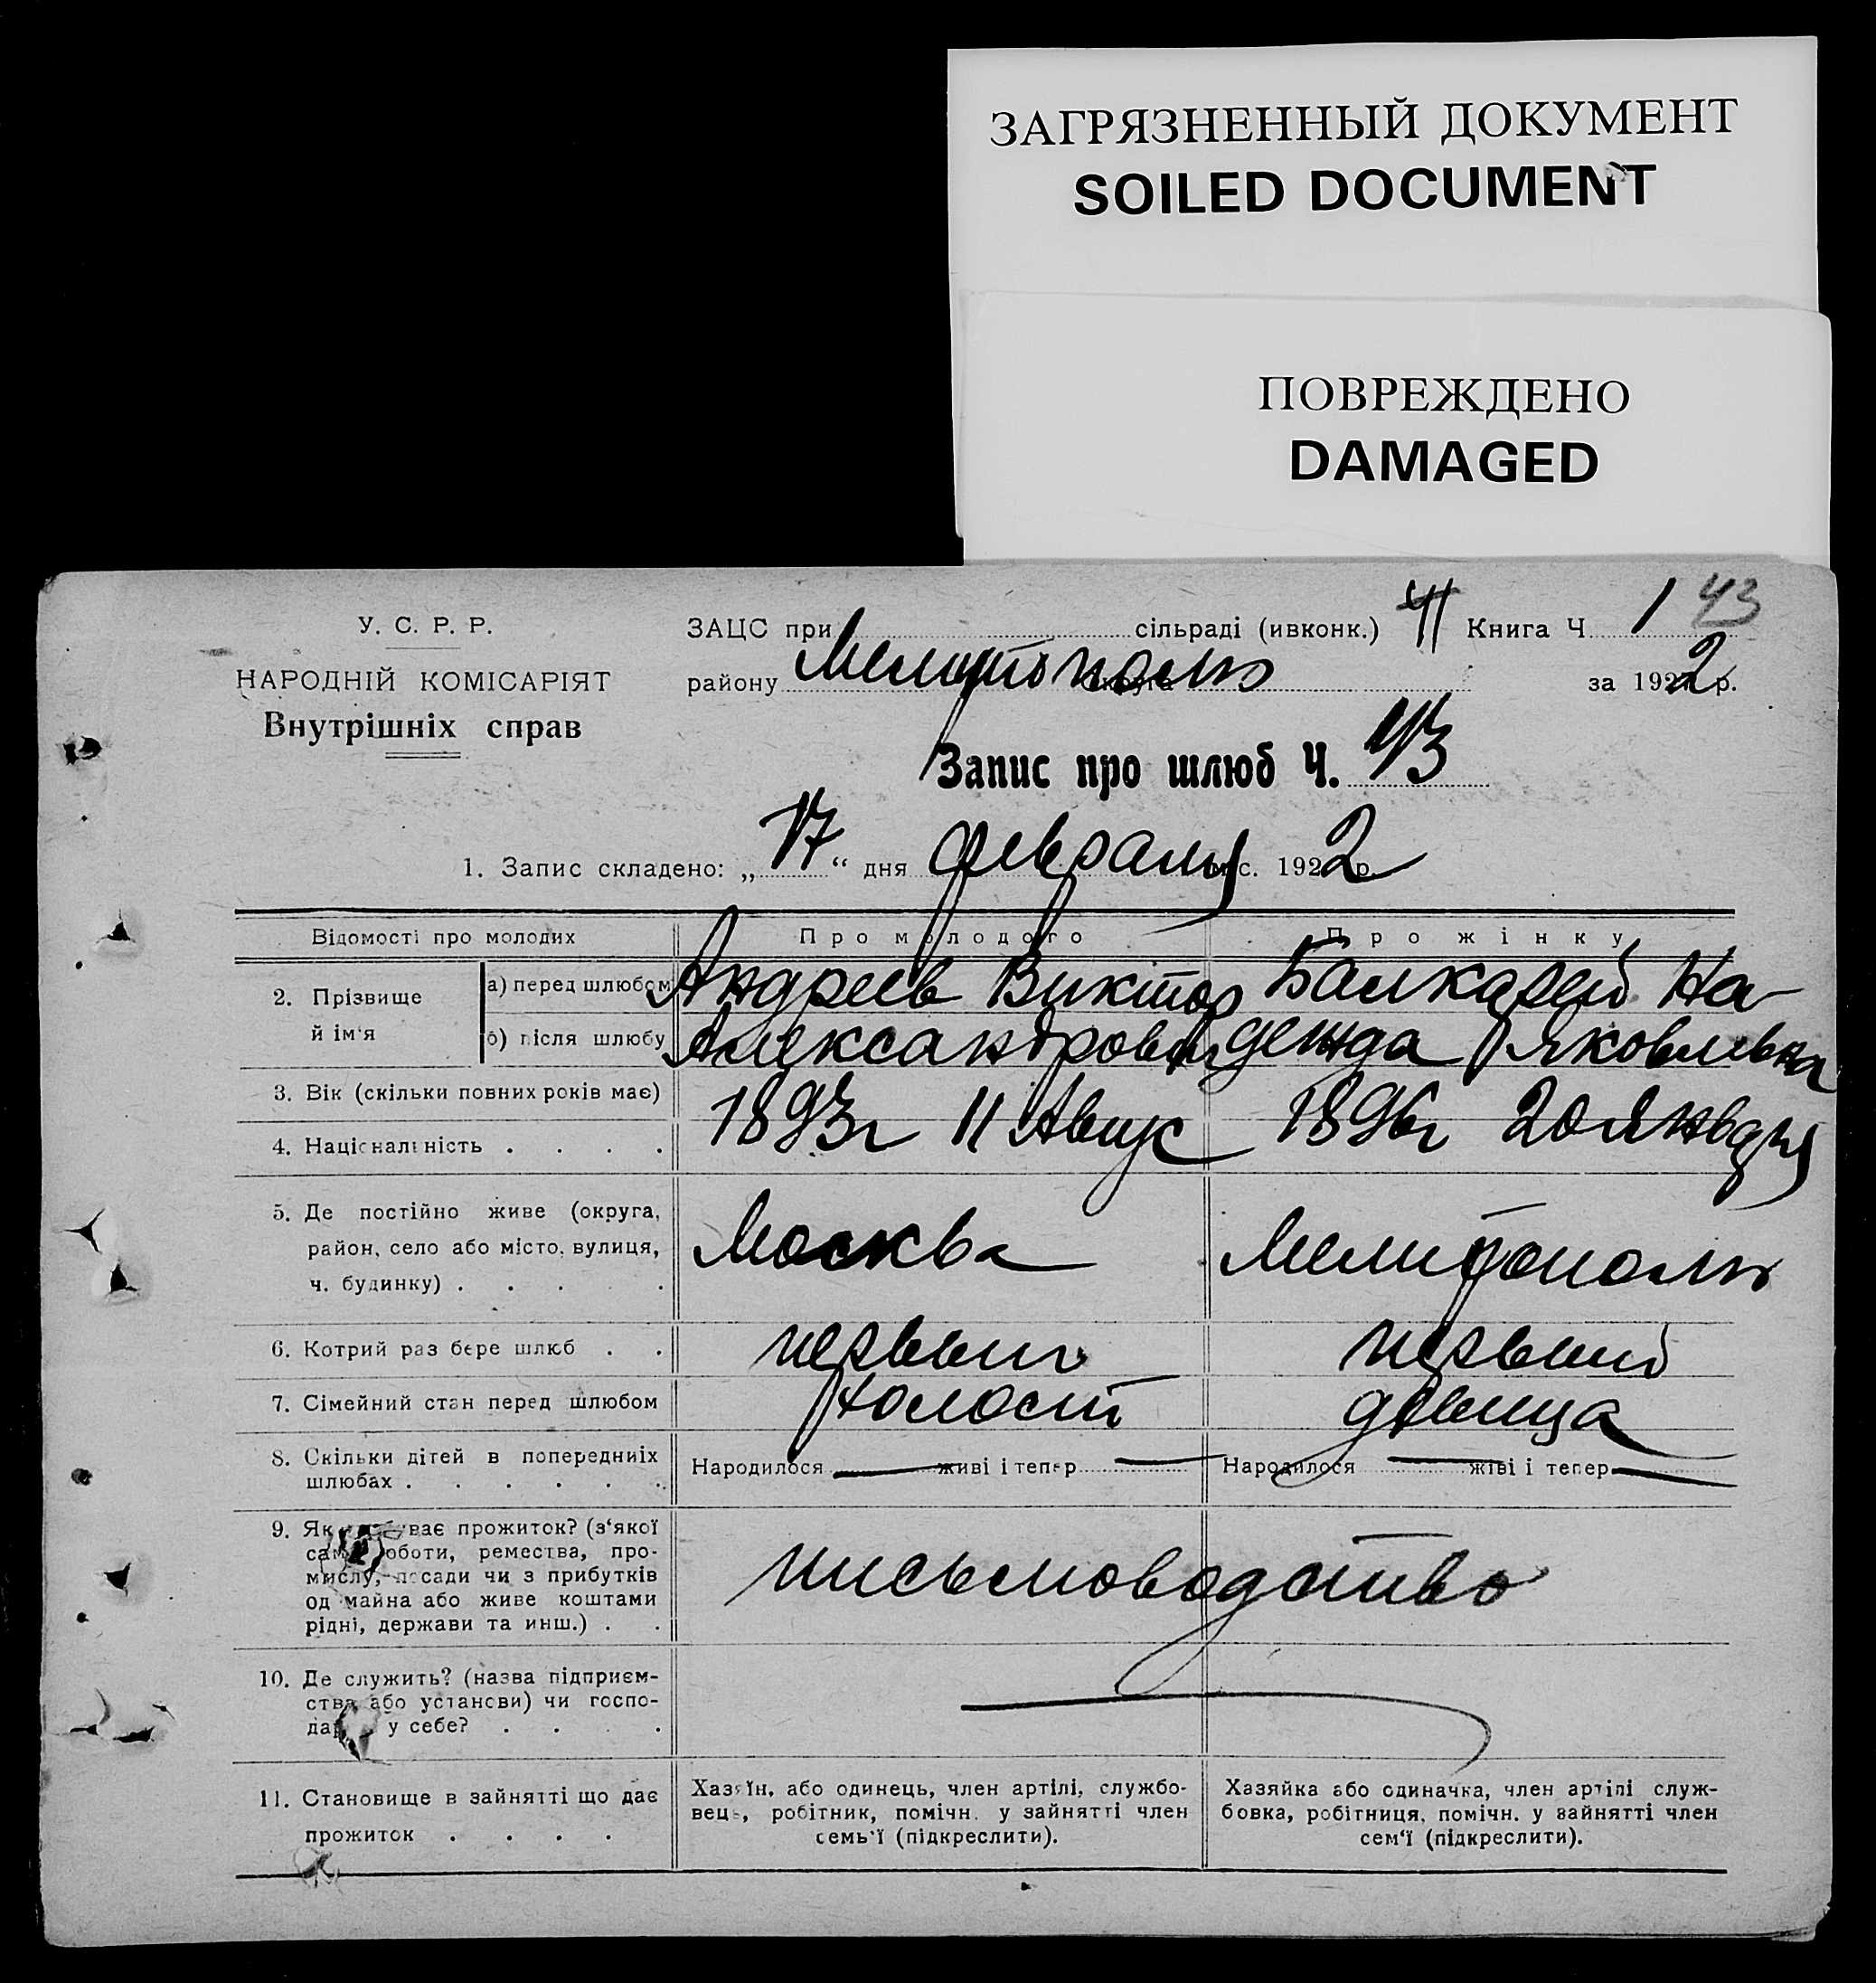 ЗАГРЯЗНЕННЫЙ ДОКУМЕНТ
SOILED DOCUMENT
ПОВРЕЖДЕНО
DAMAGED
У. С. Р. Р.
НАРОДНІЙ КОМІСАРІЯТ
Внутрішніх справ
ЗАЦС при сільраді (ивконк.) Книга Ч 1 43
району Мелитополь округа за 1922 р.
Запис про шлюб Ч. 43
1. Запис складено: „17“ дня февраля міс. 1922 р.
Відомості про молодих Про молодого Про жінку
2. Прізвище й ім'я
а) перед шлюбом Андреев Виктор Балкарей На
б) після шлюбу Александрович дежда Яковлевна
3. Вік (скільки повних років має)
4. Національність . . . .
1893г 11 Авгус 1896г 20 Января
5. Де постійно живе (округа,
район, село або місто, вулиця,
ч. будинку) . . . .
Москва Мелитополь
6. Котрий раз бере шлюб . . первый первый
7. Сімейний стан перед шлюбом холост девица
8. Скільки дітей в попередніх
шлюбах . . . . . .
Народилося живі і тепер Народилося живі і тепер
9. Як ває прожиток? (з'якої
сам оботи, ремества, про-
мислу, посади чи з прибутків
од майна або живе коштами
рідні, держави та инш.) . .
письмоводство
10. Де служить? (назва підприєм-
ства або установи) чи госпо-
дар у себе? . . . .
11. Становище в зайнятті що дає
прожиток . . . .
Хазяїн, або одинець, член артілі, службо-
вець, робітник, помічн. у зайнятті член
семь'ї (підкреслити).
Хазяйка або одиначка, член артілі служ-
бовка, робітниця, помічн. у зайнятті член
сем'ї (підкреслити).